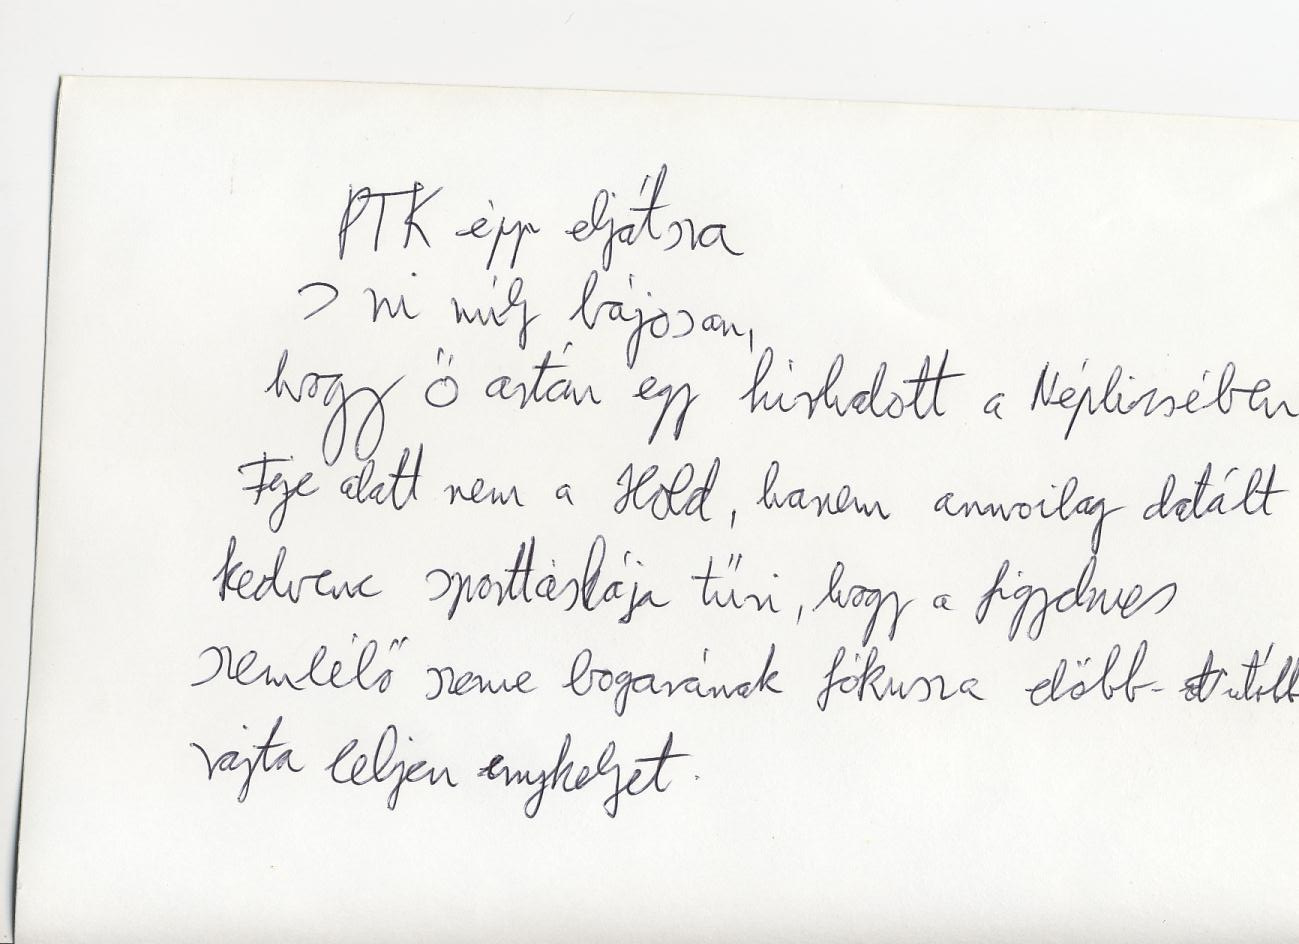 PTK épp eljátsza
s mi míly bájosan,
hogy ő aztán egy kishalott a Népligetében
Feje alatt nem a Hold, hanem annoilag datált
kedvenc sporttáskája tűri, hogy a figyelmes
szemlélő szeme bogarának fókusza előbb-utóbb
rajta leljen enyhelyet.